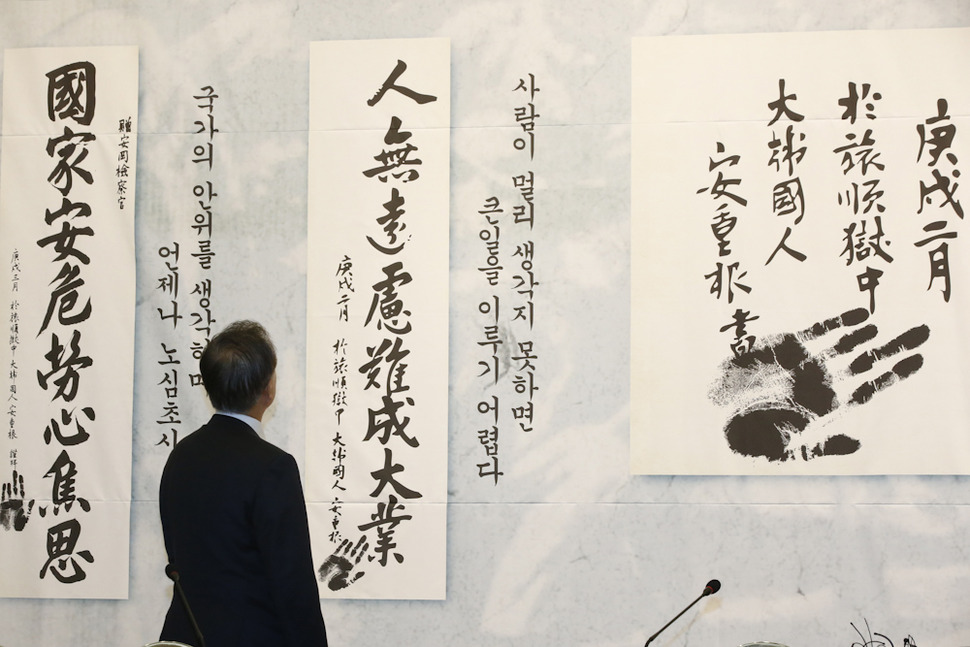 庚戌二月
於旅順獄中
大韓國人
安重根 書
사람이 멀리 생각지 못하면
큰일을 이루기 어렵다
人無遠慮難成大業
庚戌二月 於旅順獄中 大韓國人 安重根
국가의 안위를 생각하며
언제나 노심초사
贈安岡檢察官
國家安危勞心焦思
庚戌三月 於旅順獄中 大韓國人 安重根 謹拜